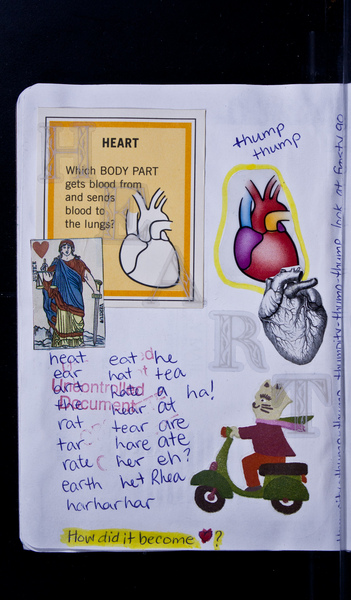 HEART
Which BODY PART
gets blood from
and sends
blood to
the lungs?
thump
thump
HEART
heat eat he
ear hat tea
art hate a ha!
the hear at
rat tear are
tar hare ate
rate her eh?
earth het Rhea
harharhar
Uncontrolled
Document
How did it become ?
thump-thump-thump look at